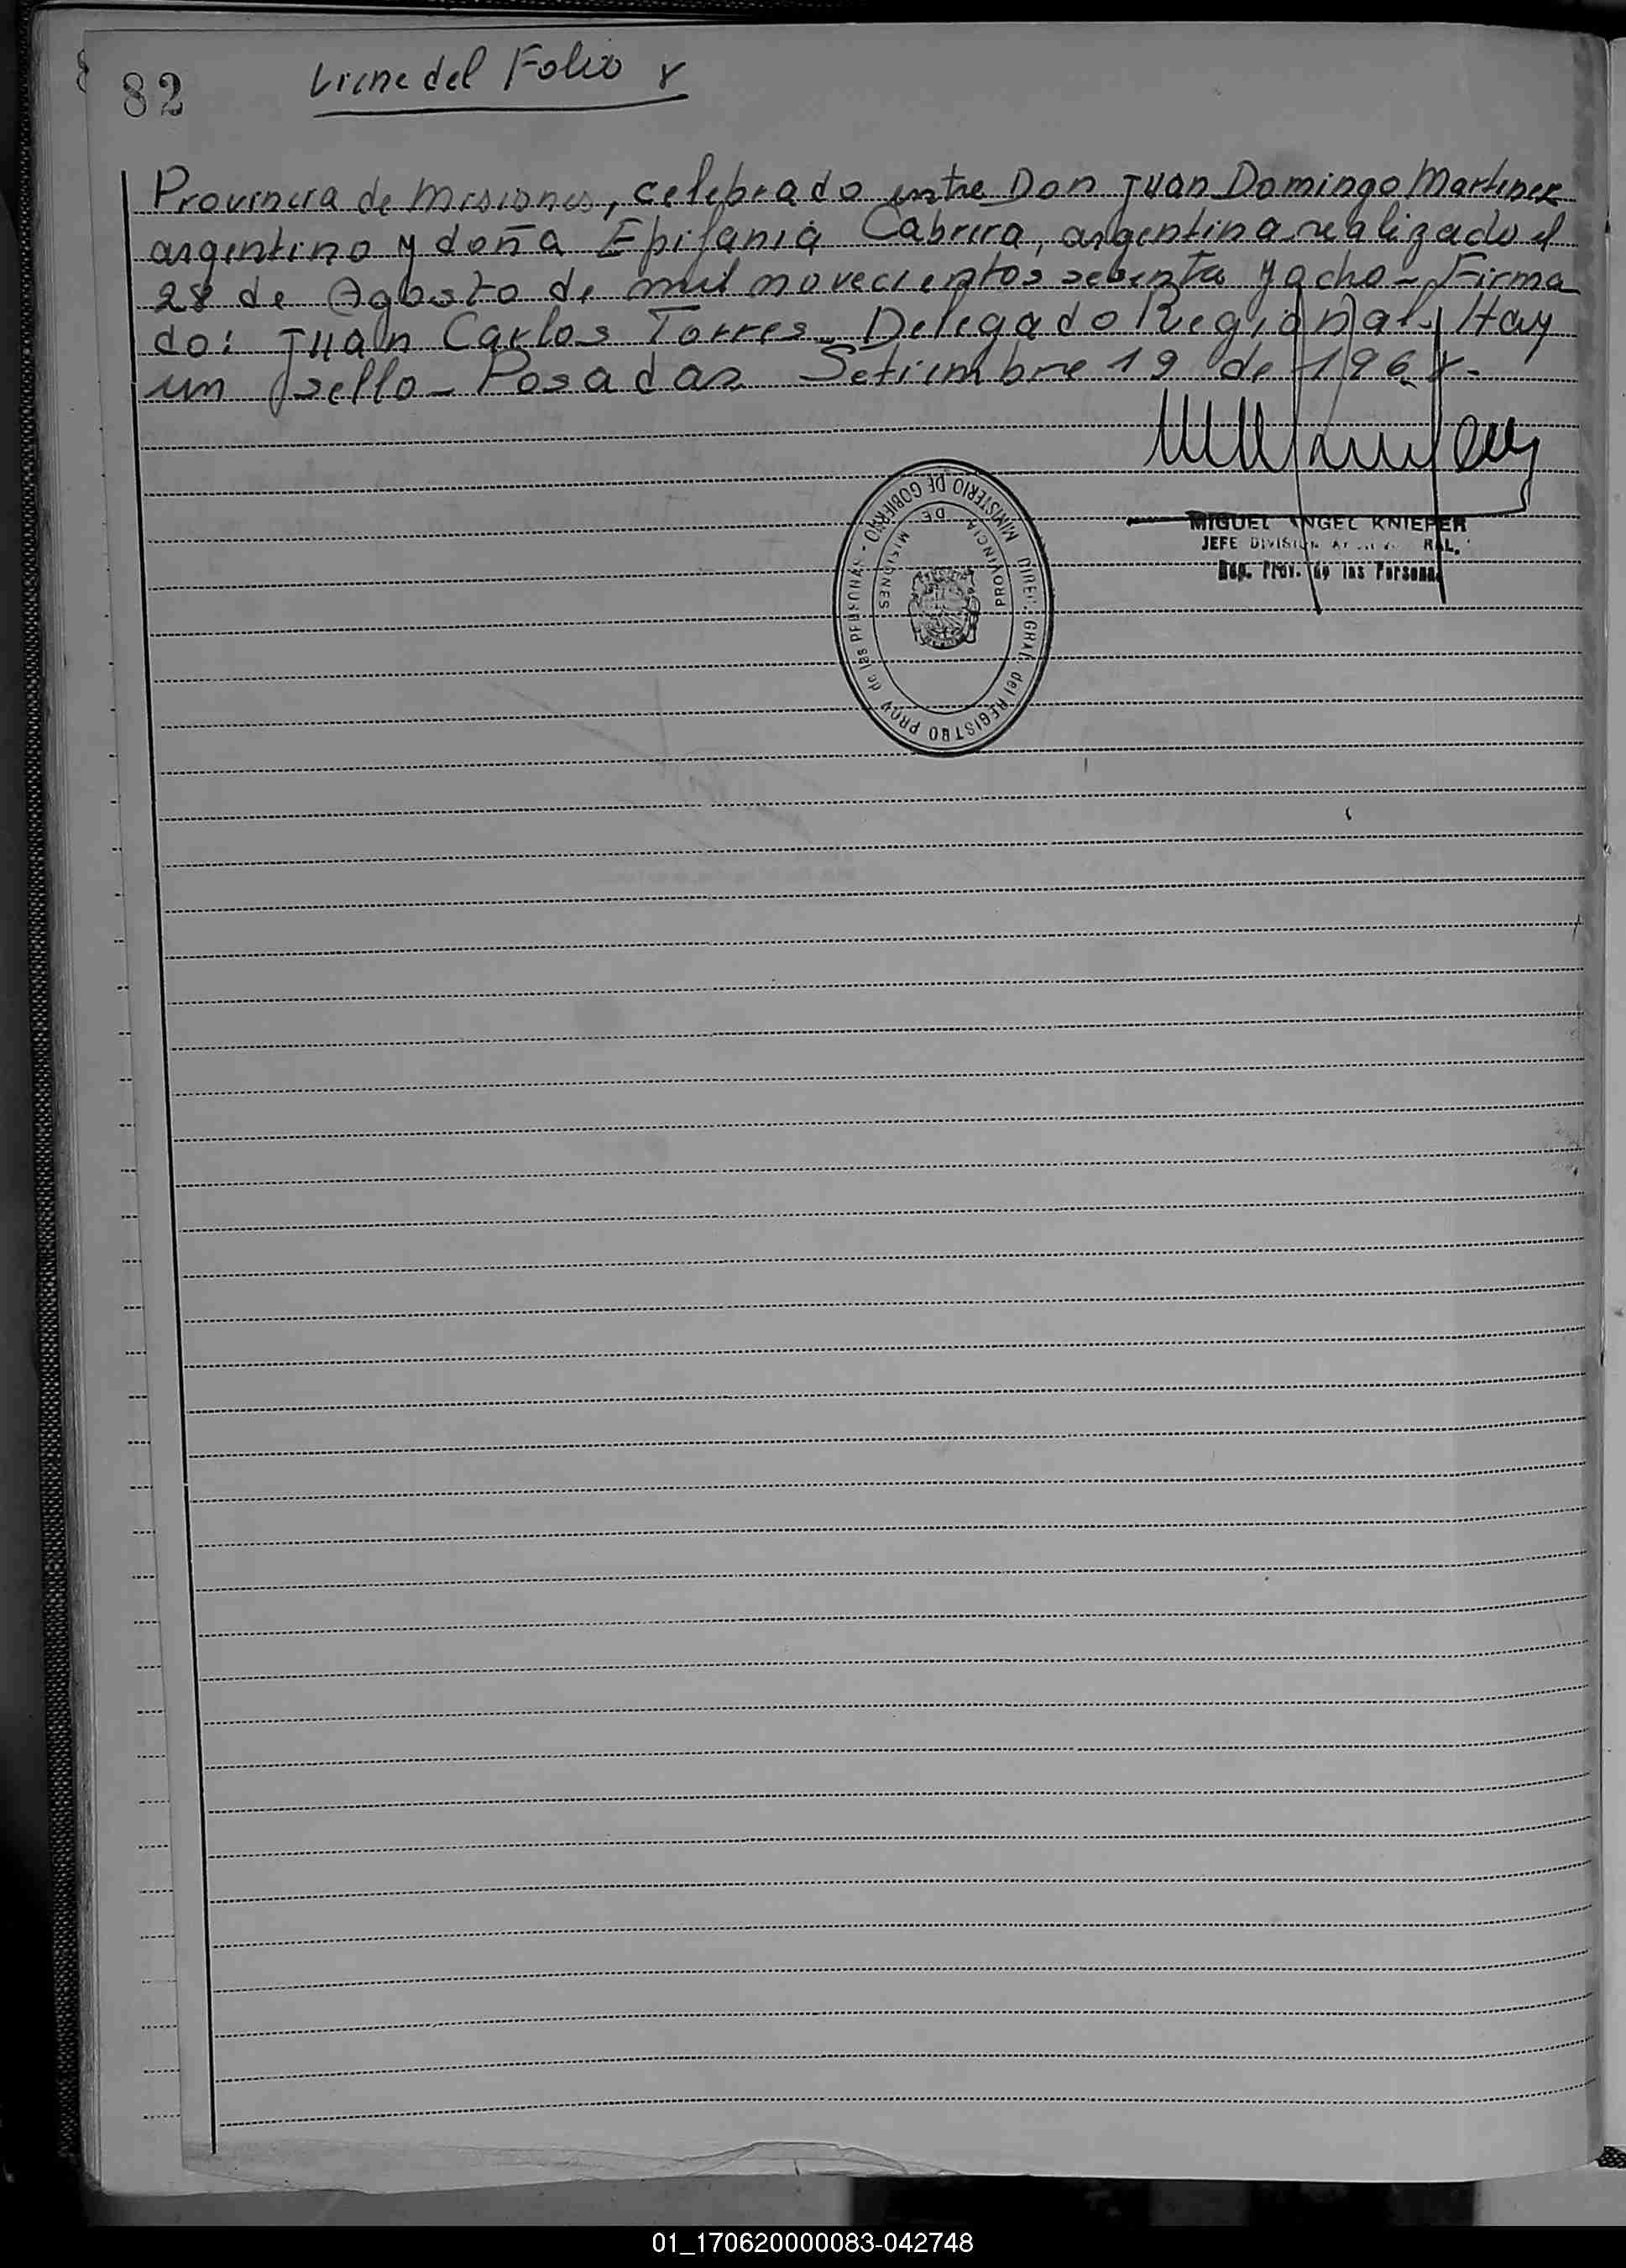 82
Viene del Folio 8
Provincia de Misiones, celebrado entre Don Juan Domingo Martinez
argentino y doña Epifania Cabrera, argentina realizado el
28 de Agosto de mil novecientos sesenta y ocho - Firma
do: Juan Carlos Torres - Delegado Regional - Hay
un sello - Posadas Setiembre 19 de 1968.-
MIGUEL ANGEL KNIEPER
JEFE DIVISION
Reg. Prov. de las Personas
MINISTERIO DE GOBIERNO - DIREC. GRAL. del REGISTRO PROV. de las PERSONAS
PROVINCIA DE MISIONES
01_170620000083-042748